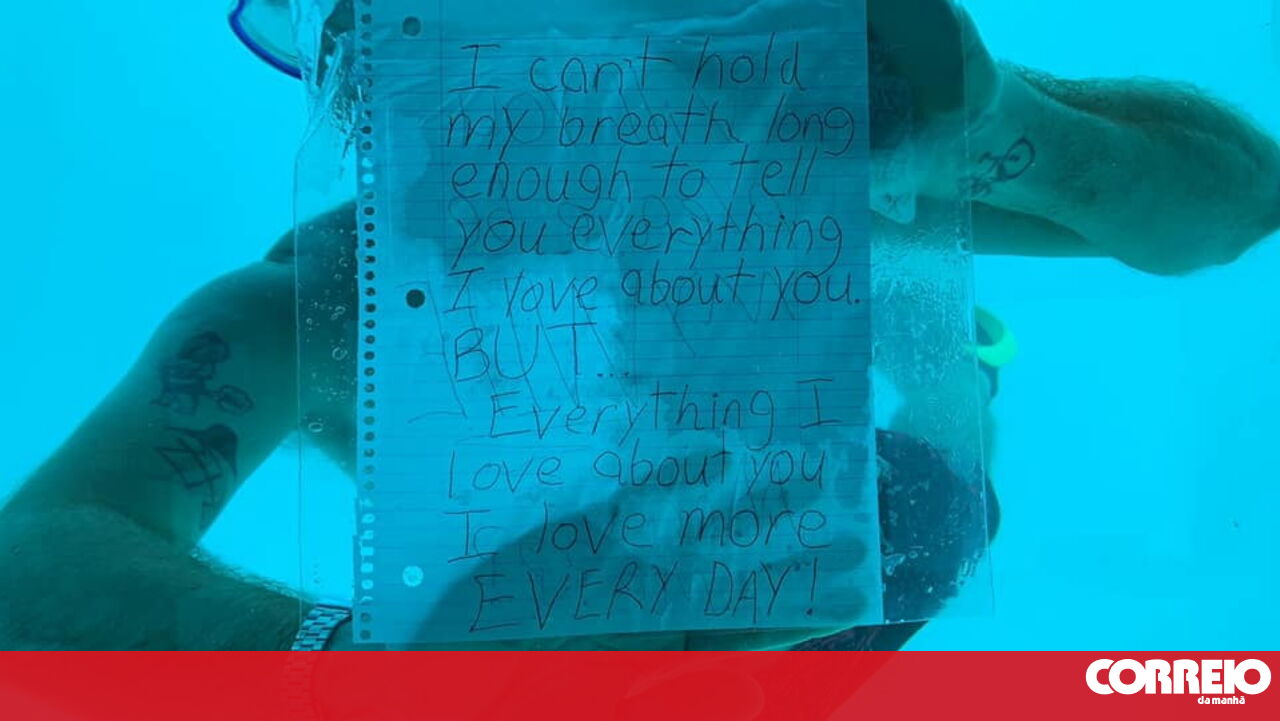 I can't hold
my breath long
enough to tell
you everything
I love about you.
BUT...
Everything I
love about you
I love more
EVERY DAY!
CORREIO
da manhã